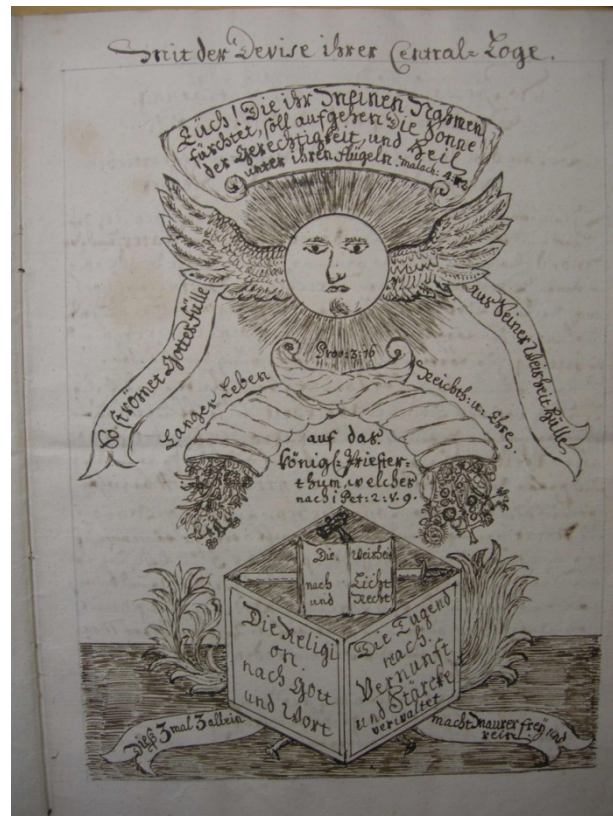 Mit der Devise ihrer Central-Loge.
Euch! Die ihr Meinen Nahmen
fürchtet, soll aufgehen Die Sonne
der Gerechtigkeit, und Heil
unter ihren Flügeln. Malach: 4.
So strömet Gottes Fülle
aus Seiner Weisheit Hülle
Prov: 3: 16
Langes Leben
Reichth: u: Ehre.
auf das
Königl: Priester-
thum, welches
nach 1 Pet: 2: v. 9.
Die Weisheit
nach Licht
und Recht
Die Religi
on.
nach Gott
und Wort
Die Tugend
nach
Vernunft
und Stärcke
verwaltet
Dieß 3 mal 3 allein
macht Maurer frey und
rein